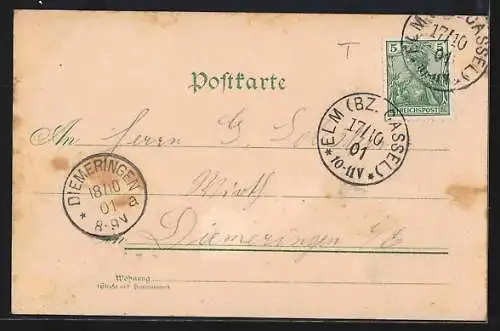 ELM (BZ. CASSEL)
17/10
01
10-11V
T
5 5
REICHSPOST
Postkarte
ELM (BZ. CASSEL)
17/10
01
10-11V
An Herrn G.
DIEMERINGEN
18/10
01
8-9V
a
Wirth
in Diemeringen
Wohnung
(Straße und Hausnummer)